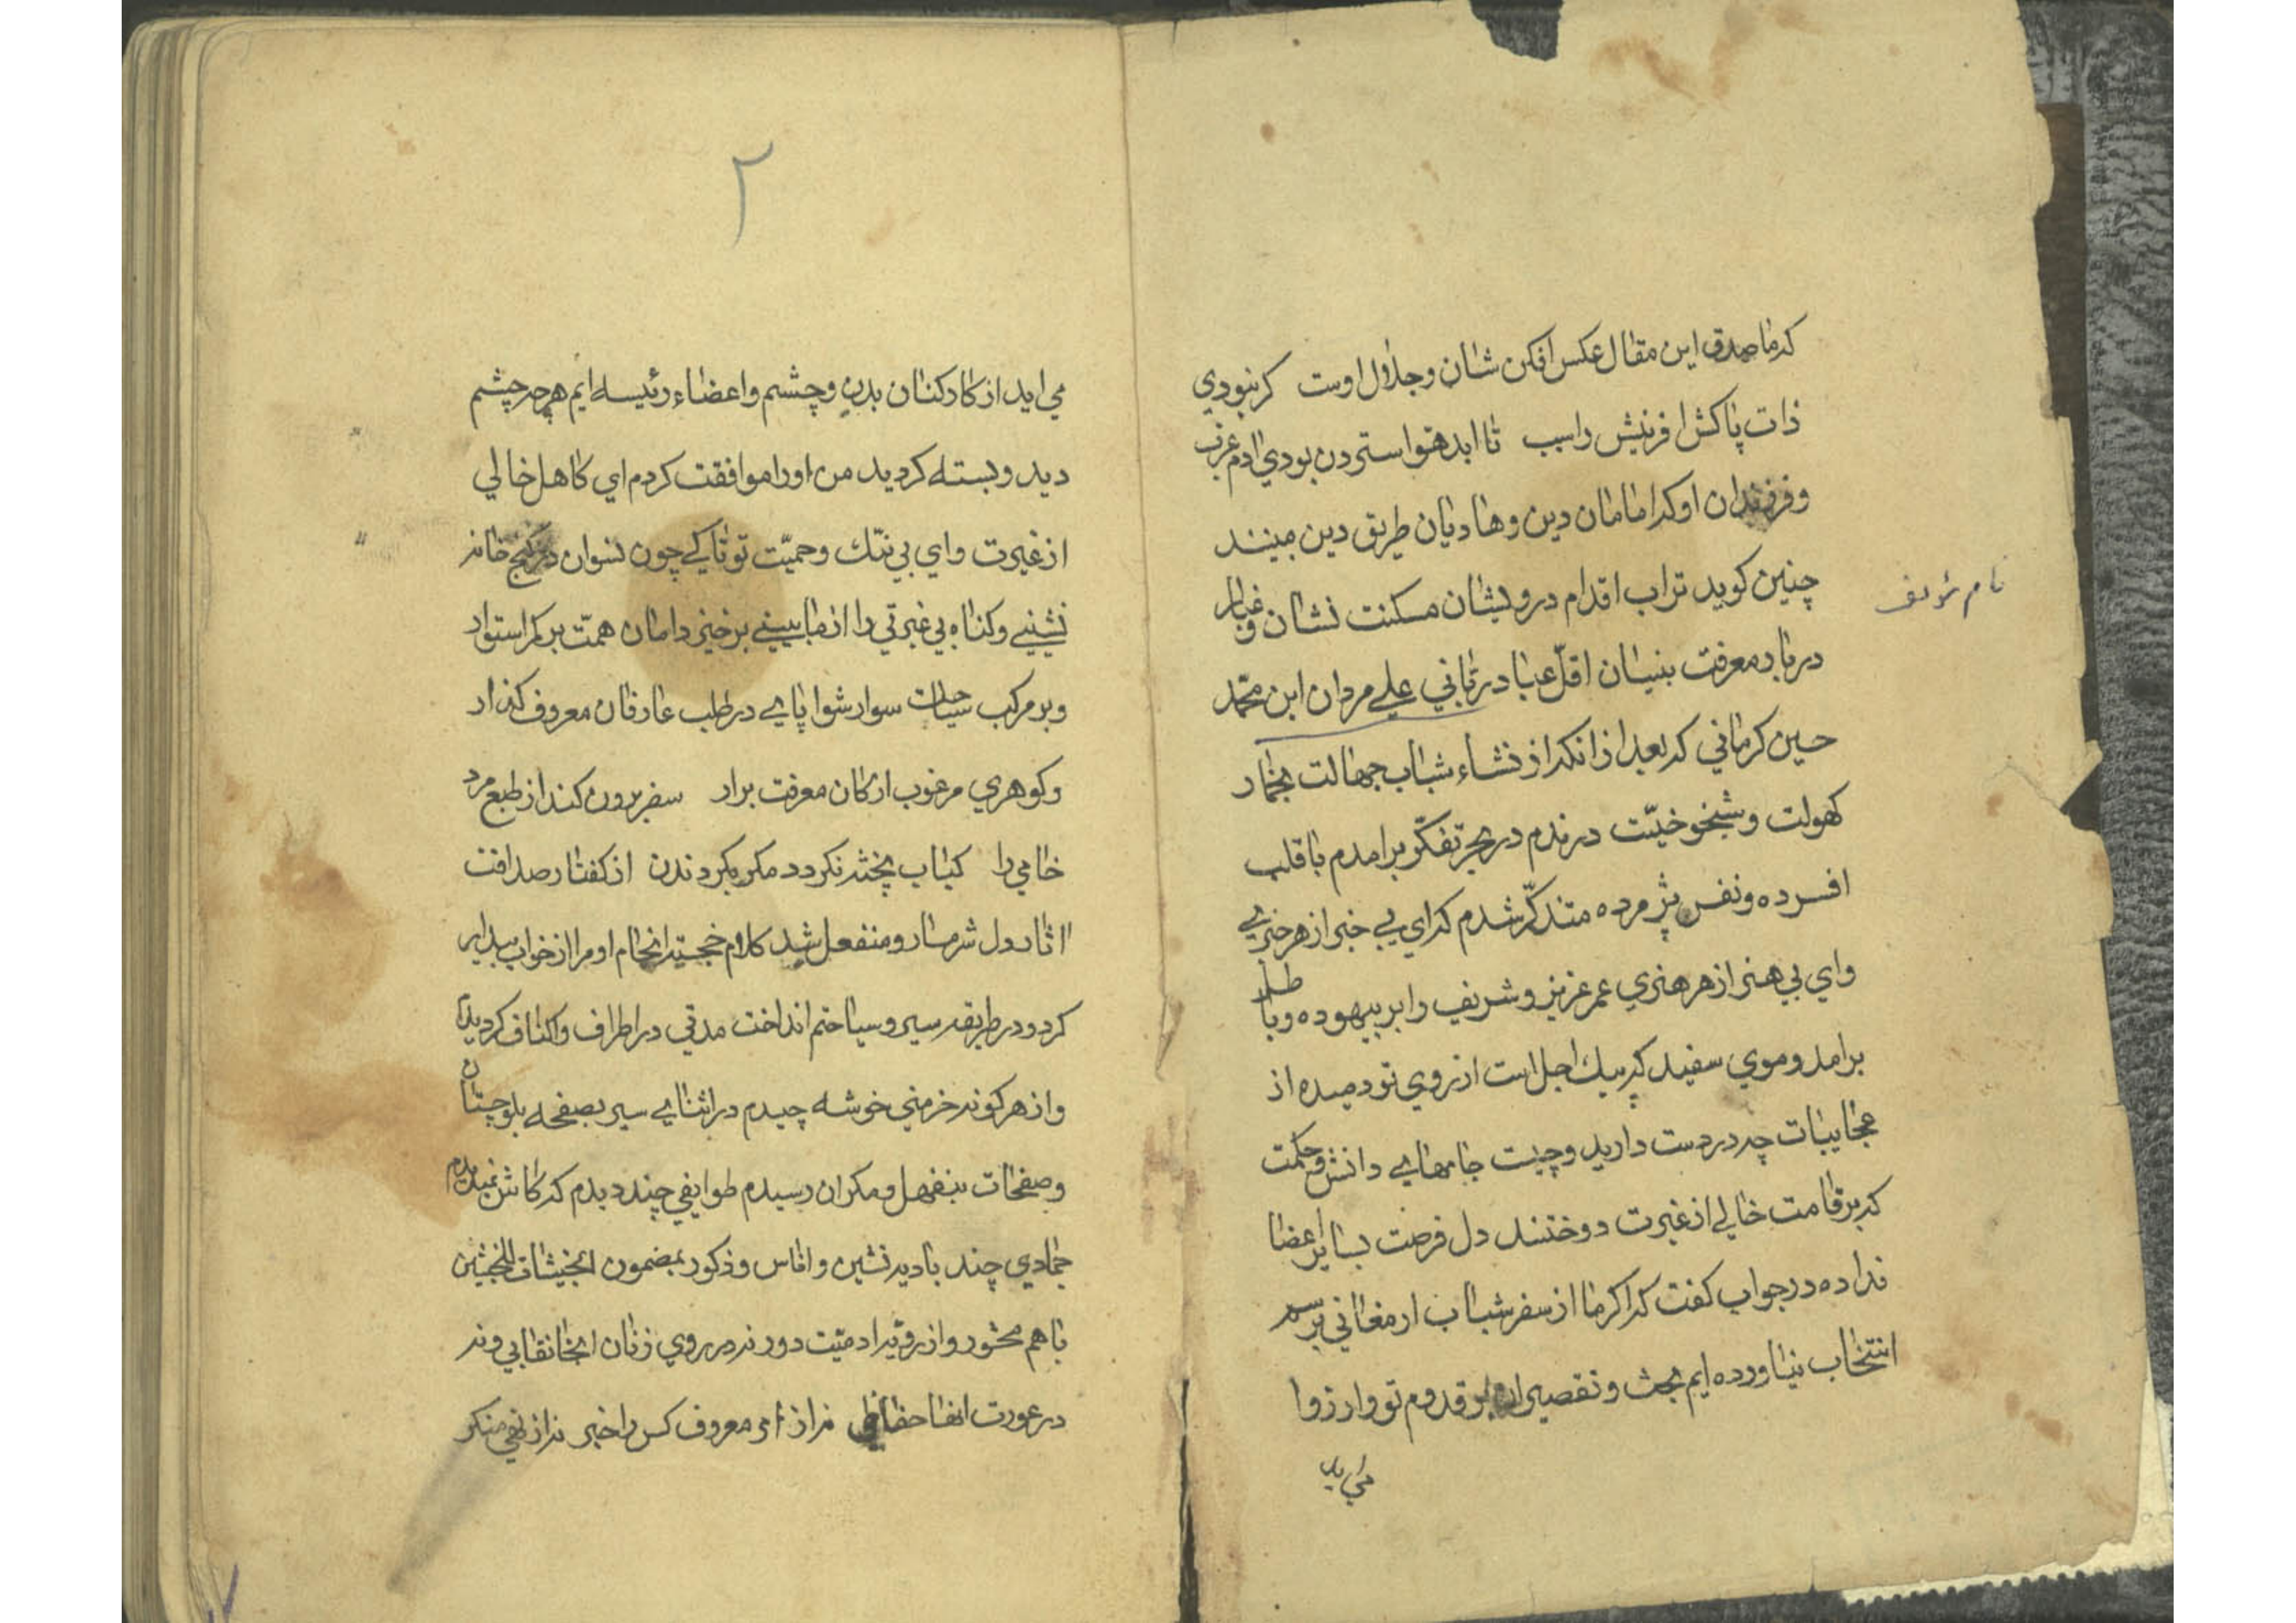 که ماصدق این مقال عکس افکن شان و جلال اوست کر نبودی
ذات پاکش افرینش را سبب تا ابد حوا سترون بودی ادم عزب
و فرزندان او که امامان دین و هادیان طریق دین مبینند
چنین کوید تراب اقدام درویشان مسکنت نشان و غبار
دربار معرفت بنیان اقلّ عباد ربّانی علی مردان ابن محمّد
حسین کرمانی که بعد از انکه از نشاء شباب جهالت بخمار
کهولت و شیخوخیّت درزدم در بحر تفکّر برامدم با قلب
افسرده و نفس پژمرده متذکّر شدم که ای بی خبر از هر خبری
وای بی هنر از هر هنری عمر عزیز و شریف را بر بیهوده و باطل
برامد و موی سفید که پیك اجل است از روی تو دمیده از
عجایبات چه در دست دارید و چیست جامهای دانش و حکمت
که بر قامت خالی از غیرت دوختند دل فرصت بسایر اعضا
نداده در جواب کفت که اکر ما از سفر شباب ارمغانی برسم
انتخاب نیاورده ایم بحث و تقصیر بر قدوم تو وارد زوا
می اید
نام مؤلف
۲
می اید از کارکنان بدن و چشم و اعضاء رئیسه ایم هرچه چشم
دید و بسته کردید من او را موافقت کردم ای کاهل خالی
از غیرت وای بی ننك و حمیّت تو تا کی چون نسوان در کنج خانه
نشینی و کناه بی غیرتی را از ما بینی برخیز دامان همّت بر کمر استوار
و بر مرکب سیاحت سوار شو پای در طلب عارفان معروف کذار
و کوهری مرغوب از کان معرفت برار سفر برون کند از طبع مرد
خامی را کباب پخته نکردد مکر بکردندن از کفتار صداقت
اثار دل شرمسار و منفعل شد کلام خجسته انجام او مرا از خواب بیدار
کرد و در طریقه سیر و سیاحتم انداخت مدتی در اطراف و اکناف کردیدم
و از هر کونه خرمنی خوشه چیدم در اثنای سیر بصفحه بلوچستان
و صفحات بنفهل و مکران رسیدم طوایفی چند دیدم که کاش نمیدیدم
جمادی چند بادیه نشین و اناس و ذکور بمضمون الخبیثات للخبیثین
با هم محشور و از رویّه ادمیّت دور نه در روی زنان انجا نقابی و نه
در عورت انها حفاظی نه از امر معروف کس را خبر نه از نهی منکر